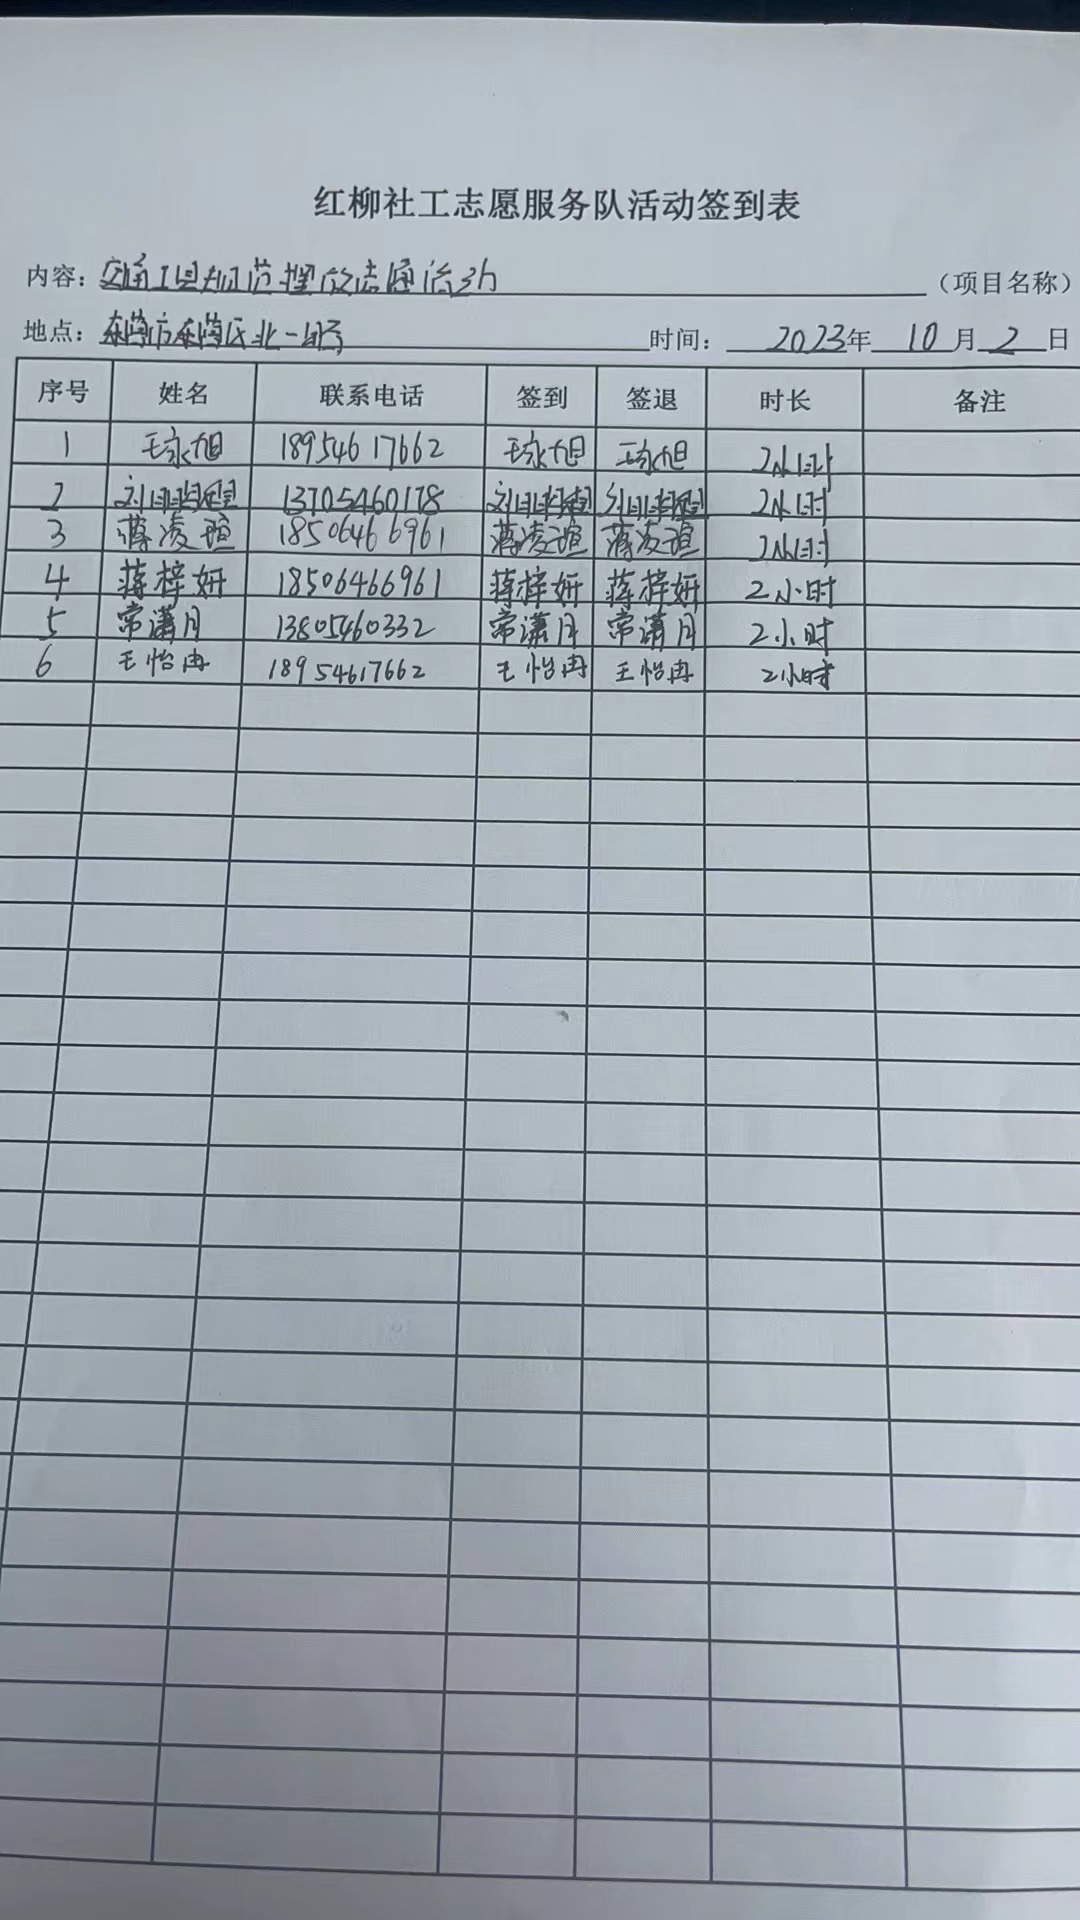 红柳社工志愿服务队活动签到表
内容：交通工具规范摆放志愿活动（项目名称）
地点：东营市东营区北一路 时间：2023年10月2日
序号 姓名 联系电话 签到 签退 时长 备注
1 王永旭 18954617662 王永旭 王永旭 2小时
2 刘 13705460178 刘 刘 2小时
3 蒋凌瑄 18506466961 蒋凌瑄 蒋凌瑄 2小时
4 蒋梓妍 18506466961 蒋梓妍 蒋梓妍 2小时
5 常潇月 13805460332 常潇月 常潇月 2小时
6 王怡冉 18954617662 王怡冉 王怡冉 2小时